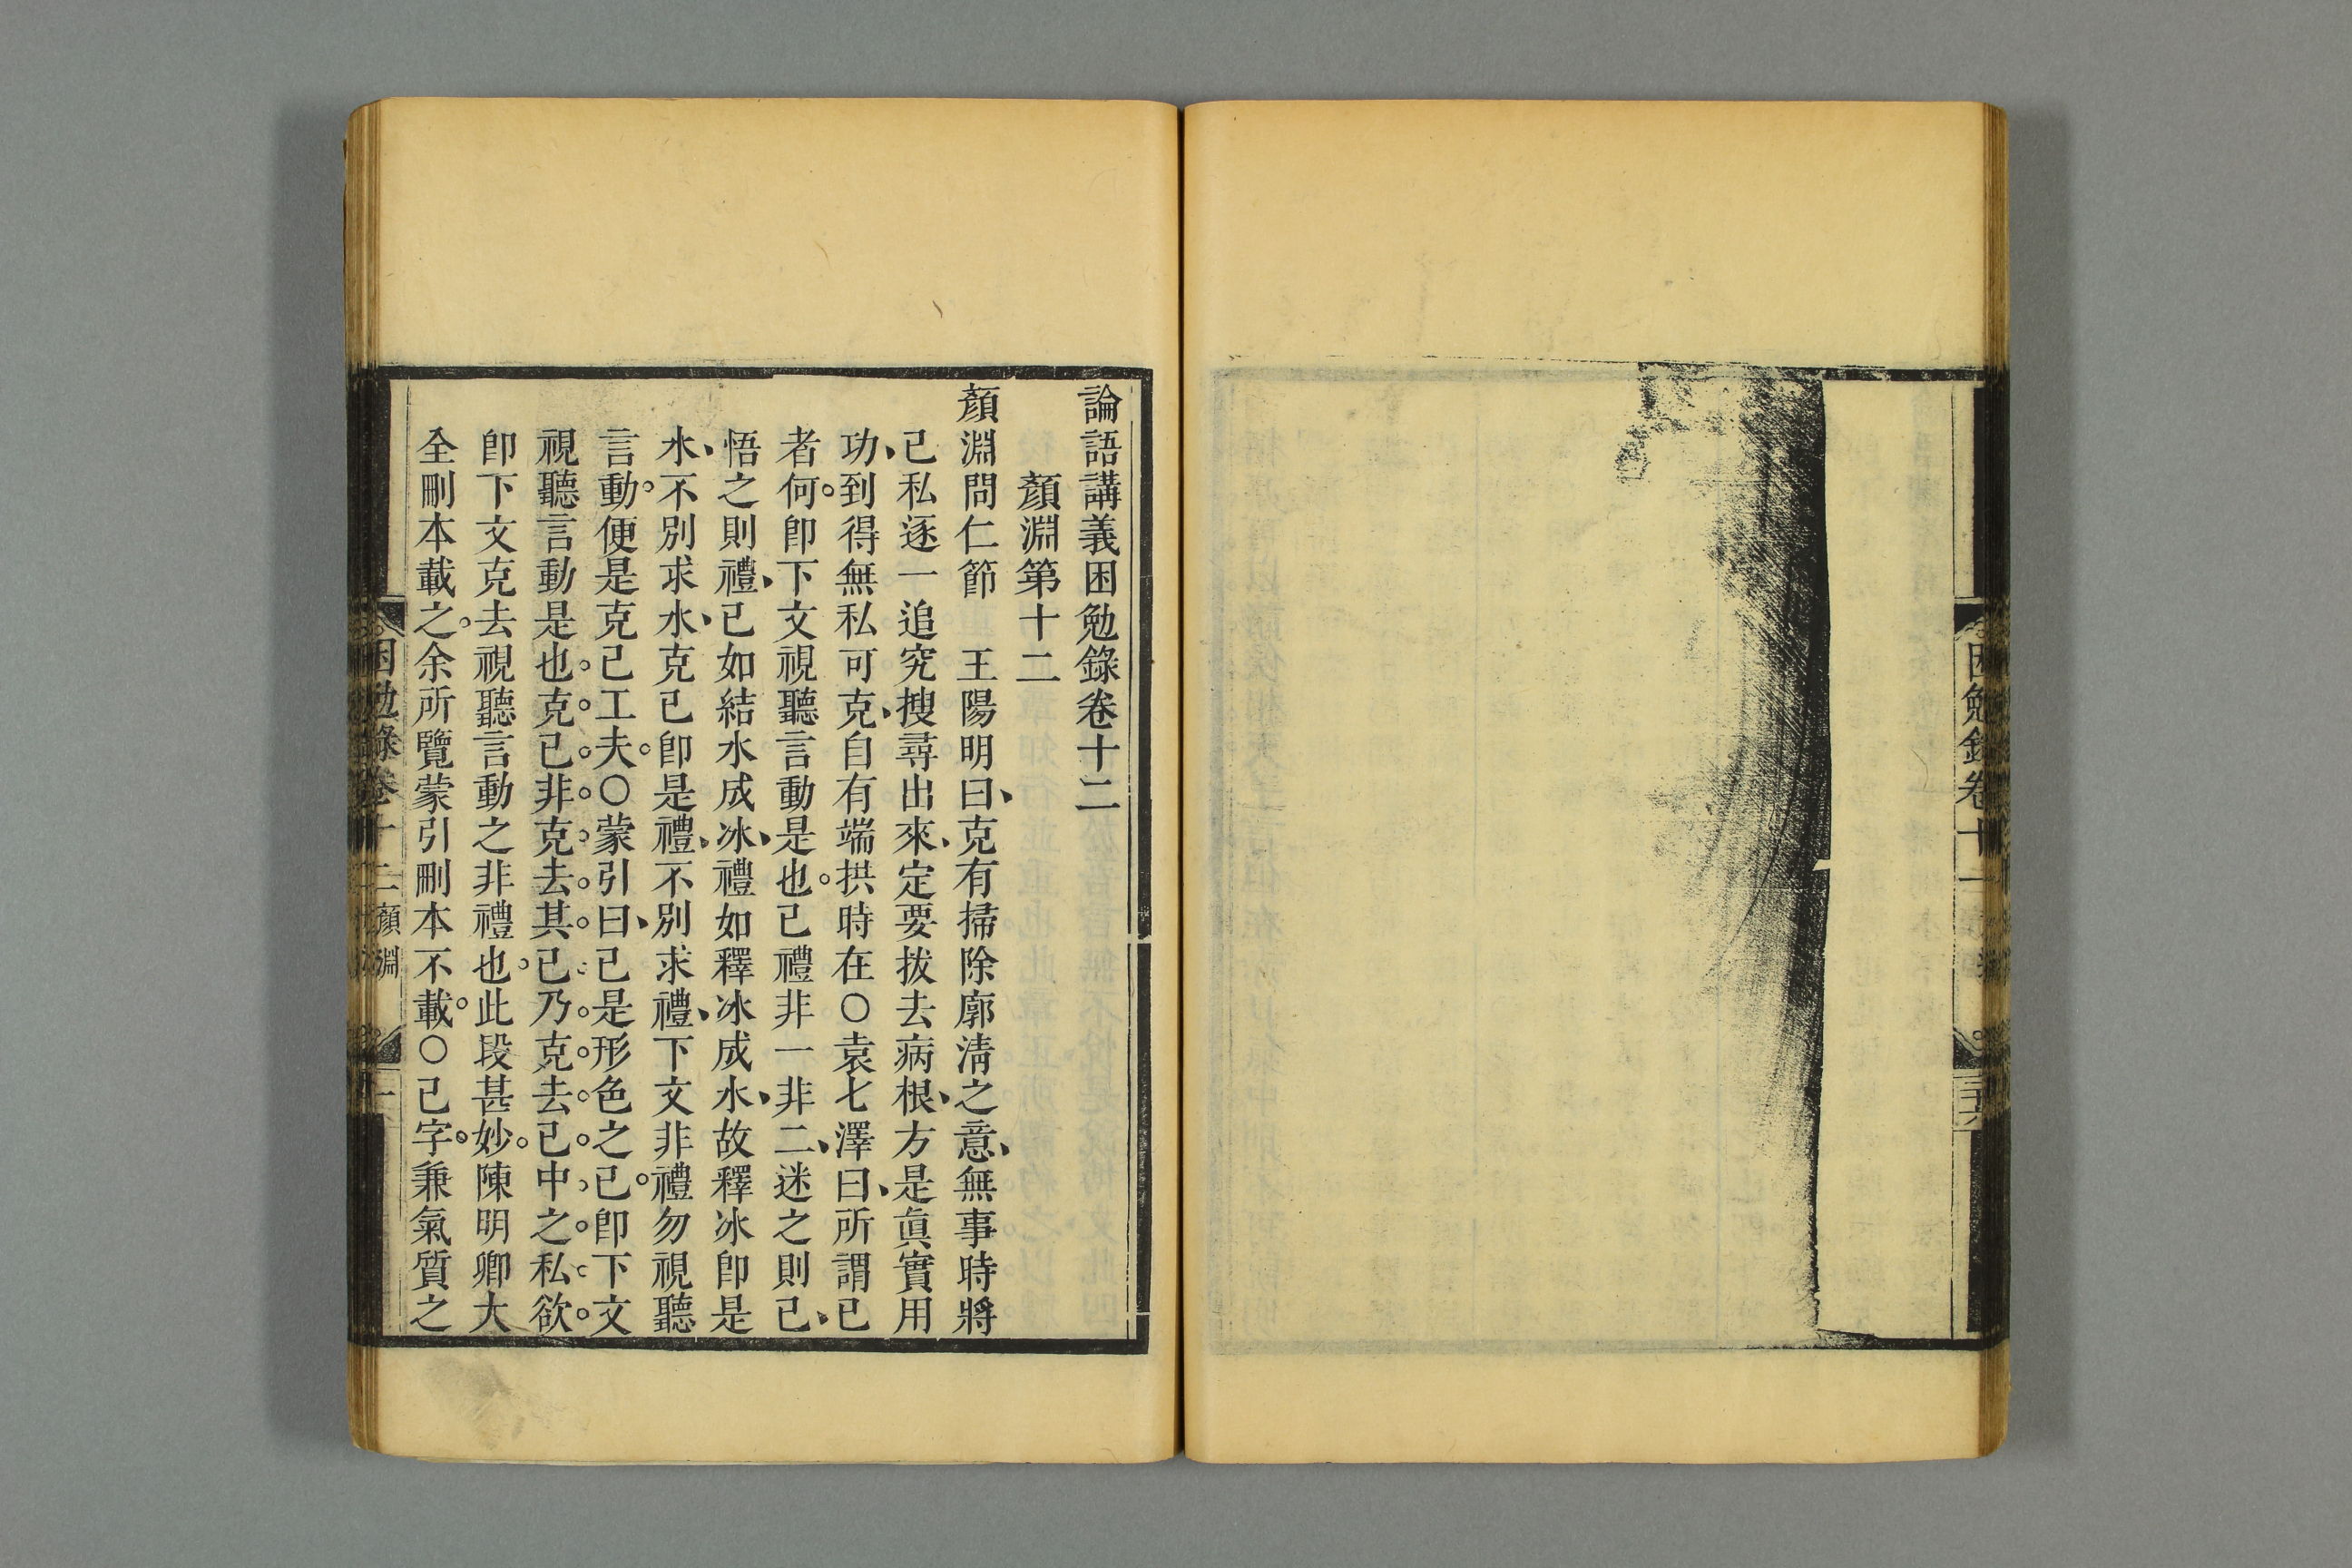 困勉錄卷十一
三十六
論語講義困勉錄卷十二
顏淵第十二
顏淵問仁節　王陽明曰、克有掃除廓淸之意、無事時將
己私逐一追究搜尋出來、定要拔去病根、方是眞實用
功、到得無私可克、自有端拱時在○袁七澤曰、所謂己
者何。卽下文視聽言動是也。己禮非一非二、迷之則己、
悟之則禮、己如結水成冰、禮如釋冰成水、故釋冰卽是
水、不別求水、克己卽是禮、不別求禮、下文非禮勿視聽
言動。便是克己工夫。○蒙引曰、己是形色之己。卽下文
視聽言動是也。克。己。非。克。去。其。己。乃。克。去。己。中。之。私。欲。
卽下文克去視聽言動之非禮也。此段甚妙。陳明卿大
全刪本載之。余所覽蒙引刪本不載。○己字。兼氣質之
困勉錄卷十二 顏淵
一